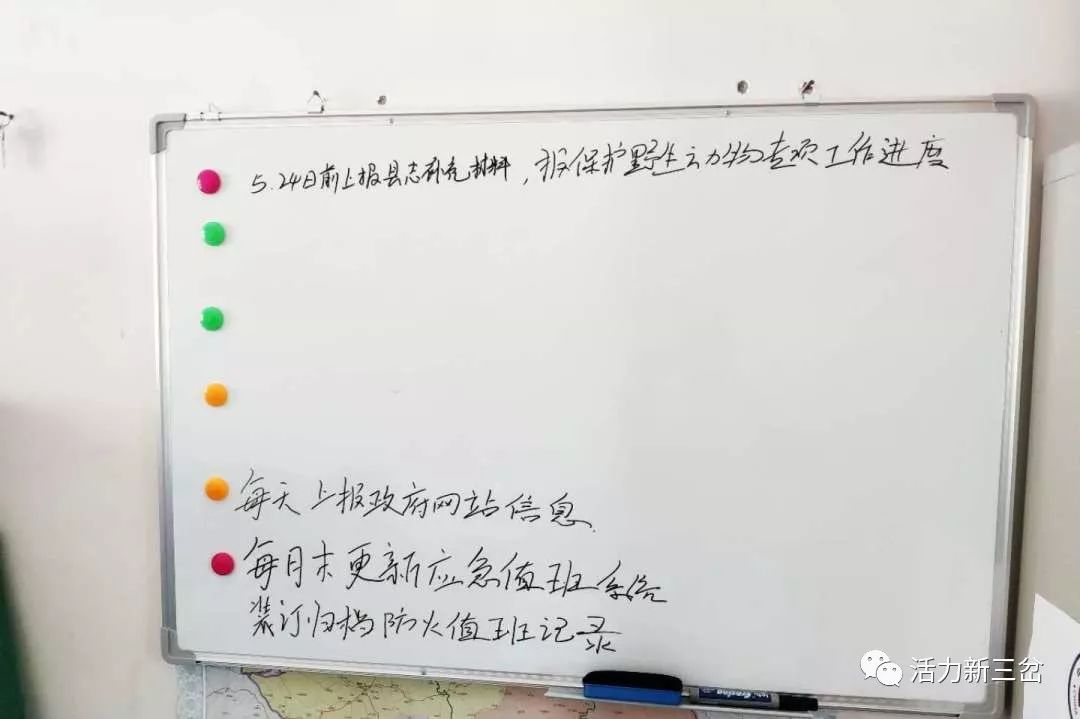 5.24日前上报县志补充材料，报保护野生动物专项工作进度
每天上报政府网站信息.
每月末更新应急值班系统
装订归档防火值班记录
活力新三岔